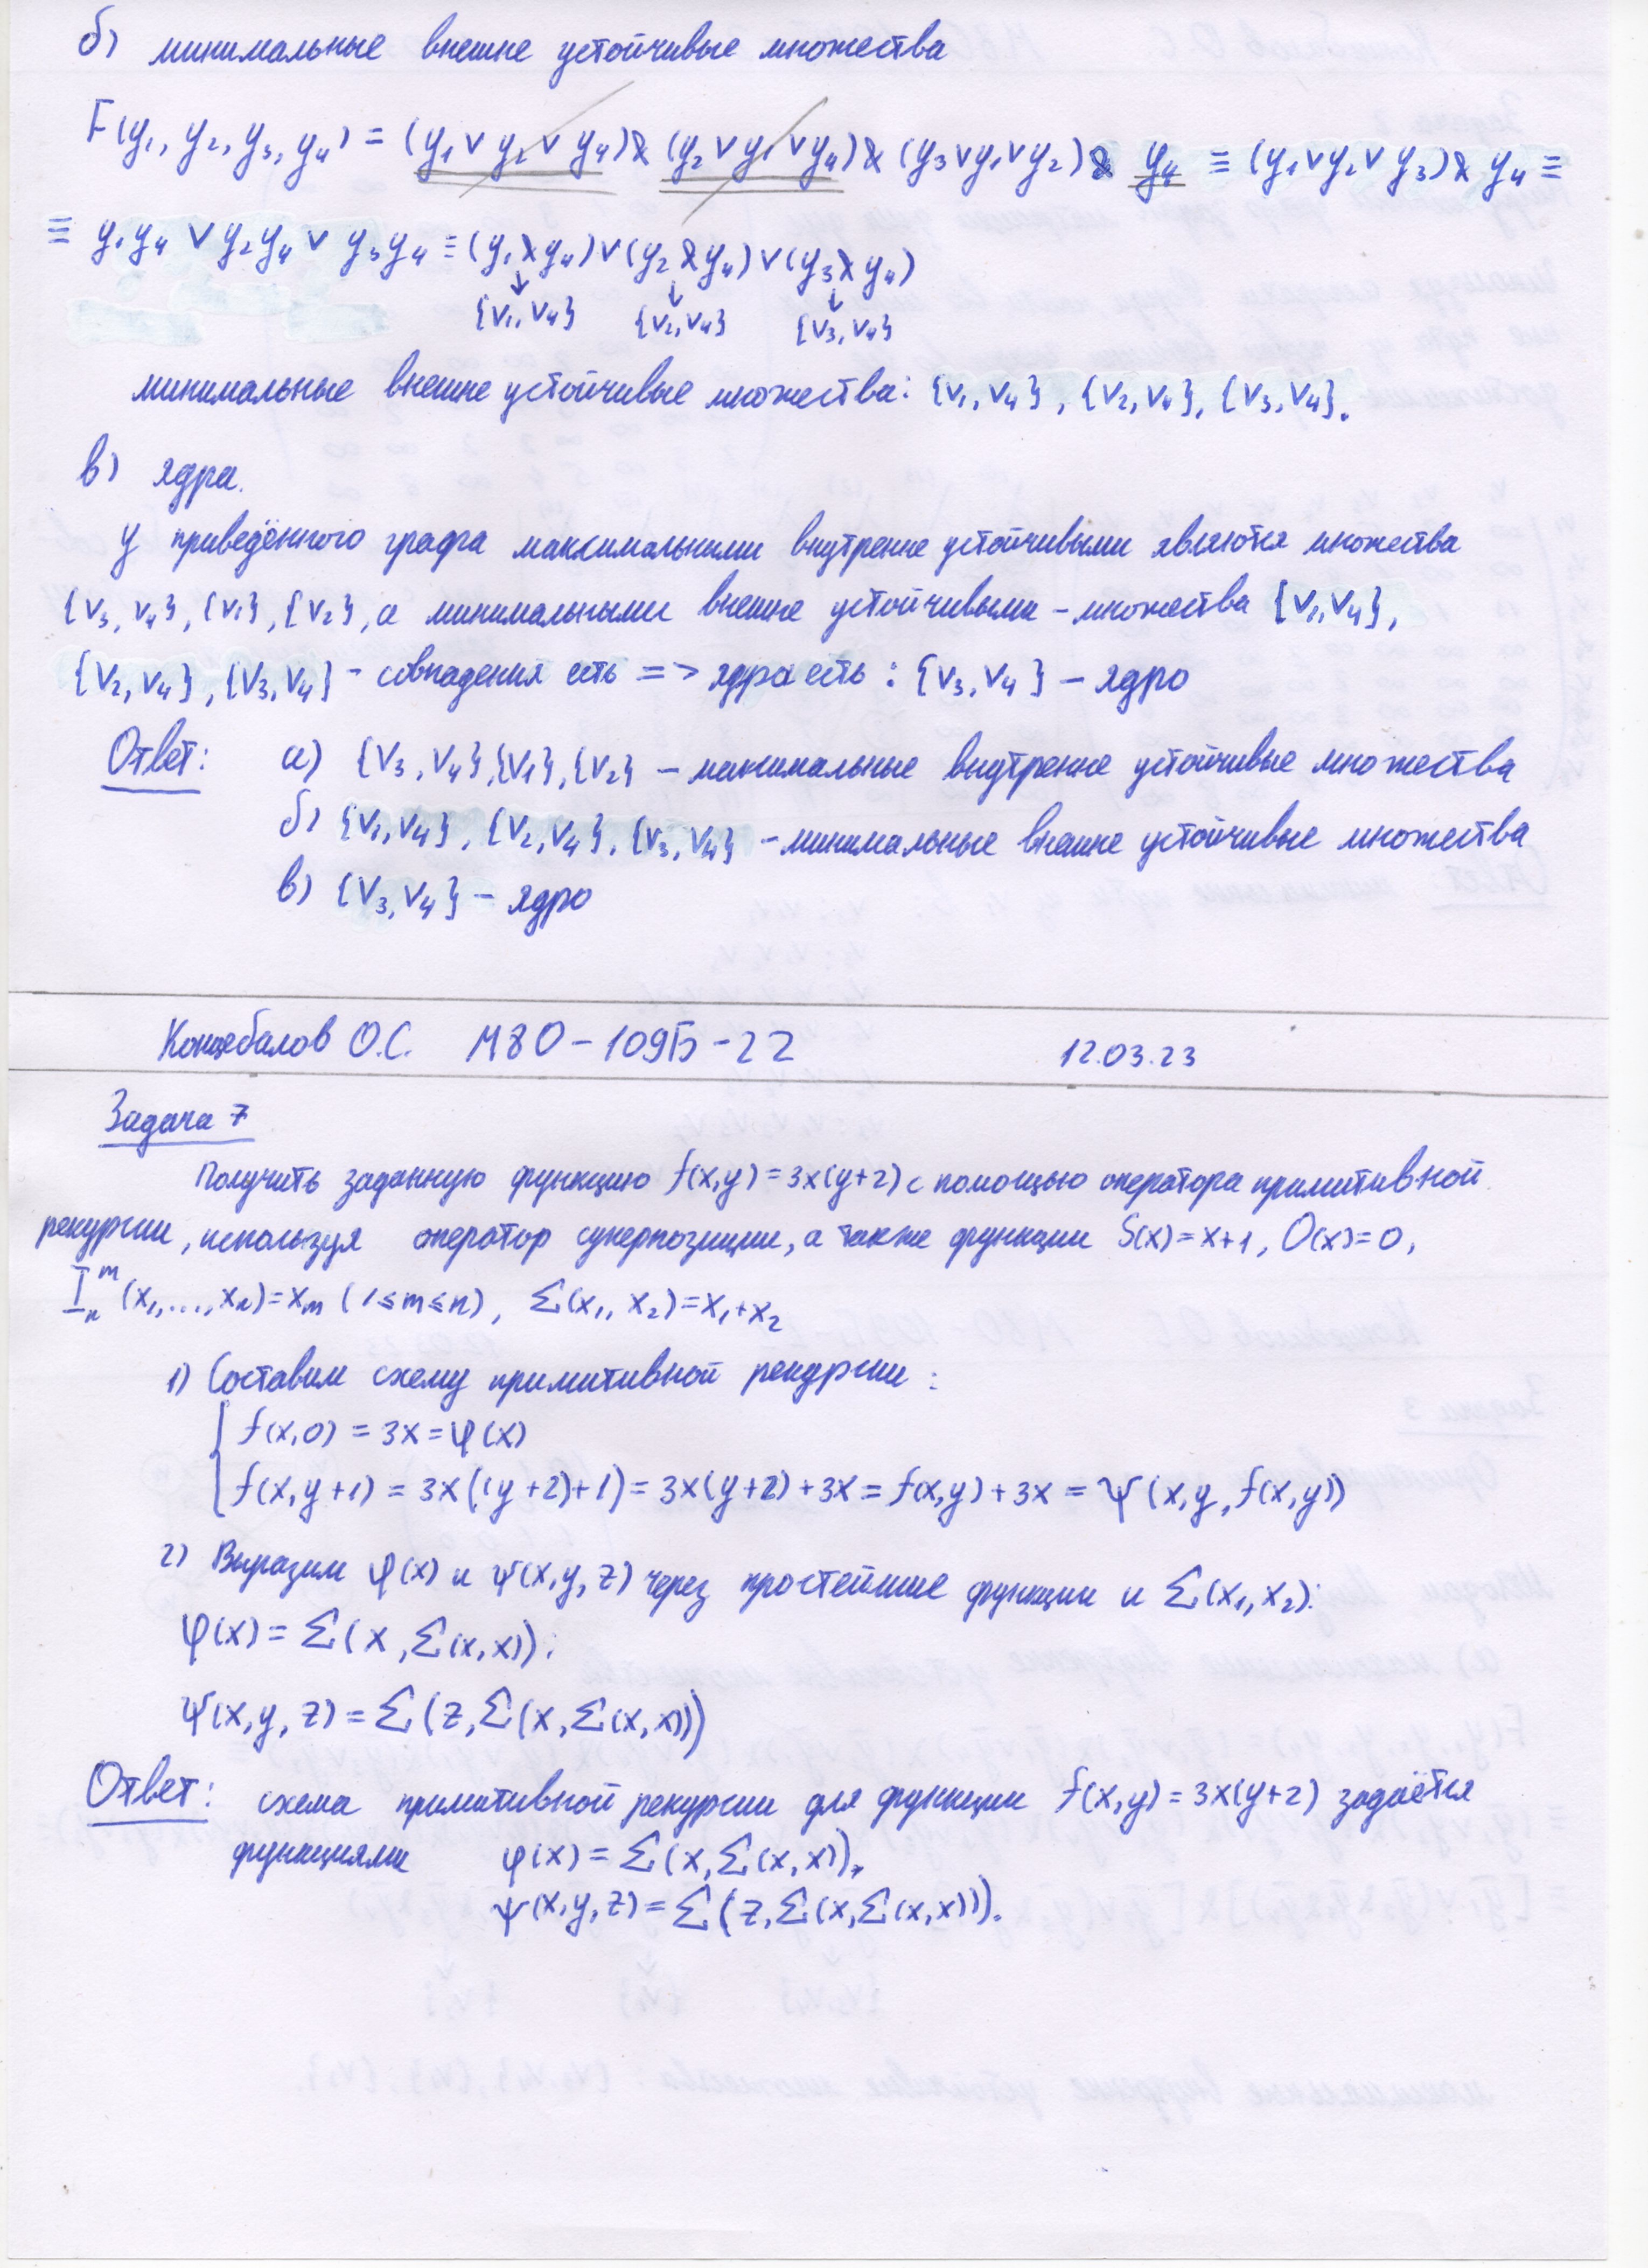 б) минимальные внешне устойчивые множества
F(y₁, y₂, y₃, y₄) = (y₁ ∨ y₂ ∨ y₄) & (y₂ ∨ y₁ ∨ y₄) & (y₃ ∨ y₁ ∨ y₂) & y₄ ≡ (y₁ ∨ y₂ ∨ y₃) & y₄ ≡
≡ y₁y₄ ∨ y₂y₄ ∨ y₃y₄ ≡ (y₁ & y₄) ∨ (y₂ & y₄) ∨ (y₃ & y₄)
↓ ↓ ↓
{v₁, v₄} {v₂, v₄} {v₃, v₄}
минимальные внешне устойчивые множества: {v₁, v₄}, {v₂, v₄}, {v₃, v₄}.
в) ядра.
У приведённого графа максимальными внутренне устойчивыми являются множества
{v₃, v₄}, {v₁}, {v₂}, а минимальными внешне устойчивыми - множества {v₁, v₄},
{v₂, v₄}, {v₃, v₄} - совпадения есть => ядра есть : {v₃, v₄} – ядро
Ответ: а) {v₃, v₄}, {v₁}, {v₂} – максимальные внутренне устойчивые множества
б) {v₁, v₄}, {v₂, v₄}, {v₃, v₄} - минимальные внешне устойчивые множества
в) {v₃, v₄} – ядро
О.С. М8О – 109Б – 22 12.03.23
Задача 7
Получить заданную функцию f(x,y) = 3x(y+2) с помощью оператора примитивной
рекурсии, используя оператор суперпозиции, а также функции S(x) = x+1, O(x) = 0,
Iₙᵐ(x₁,...,xₙ) = xₘ (1 ≤ m ≤ n), Σ(x₁, x₂) = x₁ + x₂
1) Составим схему примитивной рекурсии :
f(x,0) = 3x = φ(x)
f(x,y+1) = 3x((y+2)+1) = 3x(y+2) + 3x = f(x,y) + 3x = ψ(x,y,f(x,y))
2) Выразим φ(x) и ψ(x,y,z) через простейшие функции и Σ(x₁,x₂):
φ(x) = Σ(x, Σ(x,x));
ψ(x,y,z) = Σ(z, Σ(x, Σ(x,x)))
Ответ: схема примитивной рекурсии для функции f(x,y) = 3x(y+2) задаётся
функциями φ(x) = Σ(x, Σ(x,x)),
ψ(x,y,z) = Σ(z, Σ(x, Σ(x,x))).